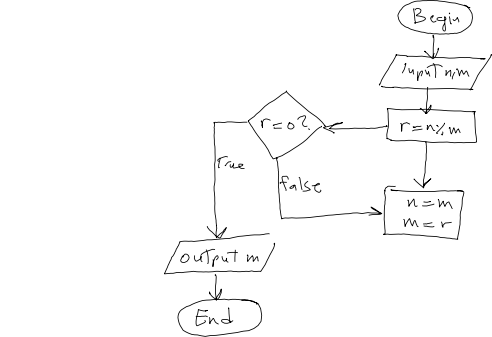 Begin
input n,m
r=n%m
r=0?
True
false
n=m
m=r
output m
End